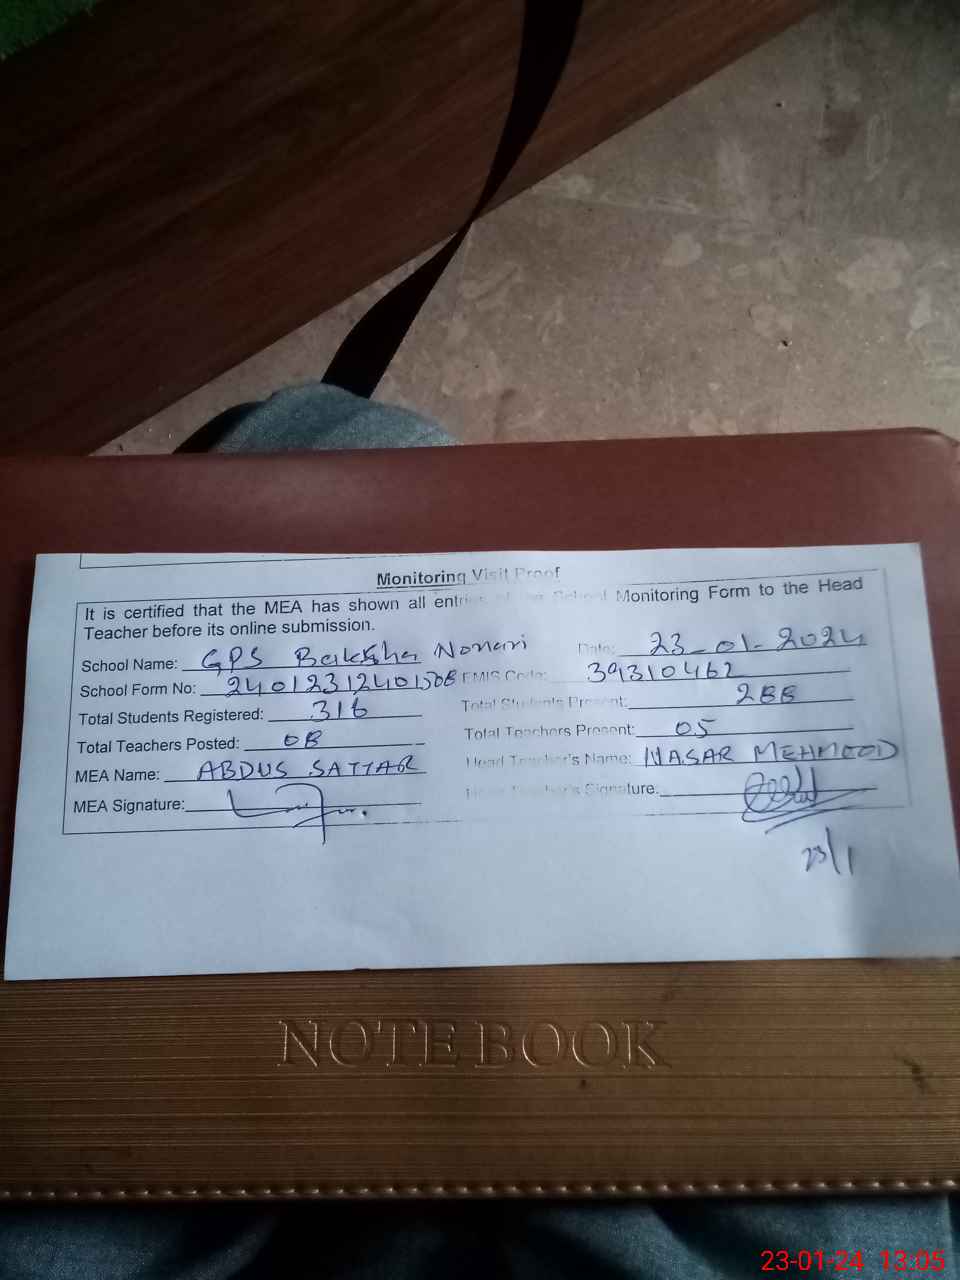 Monitoring Visit Proof
It is certified that the MEA has shown all entries of the School Monitoring Form to the Head
Teacher before its online submission.
School Name: GPS Baksha Nonari Date: 23-01-2024
School Form No: EMIS Code: 39310462
Total Students Registered: 316 Total Students Present: 288
Total Teachers Posted: 08 Total Teachers Present: 05
MEA Name: ABDUS SATTAR Head Teacher's Name: NASAR MEHMOOD
MEA Signature: Head Teacher's Signature:
23/1
NOTE BOOK
23-01-24 13:05